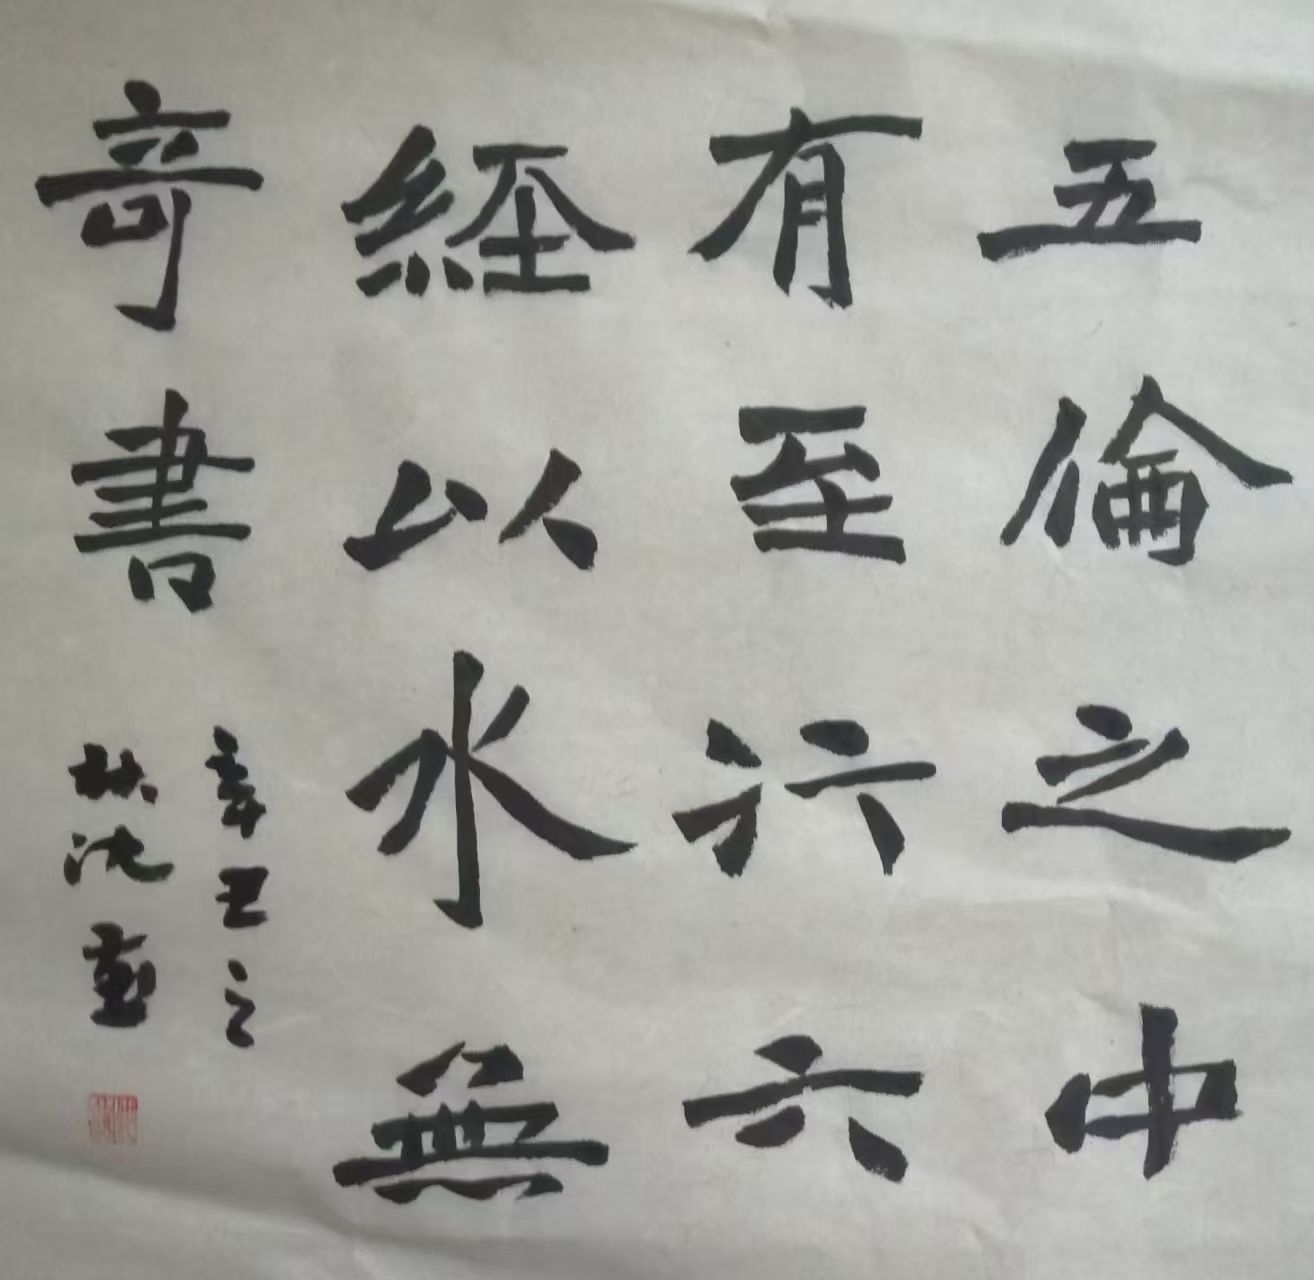 五倫之中
有至六
經以水無
奇書
辛丑之
秋